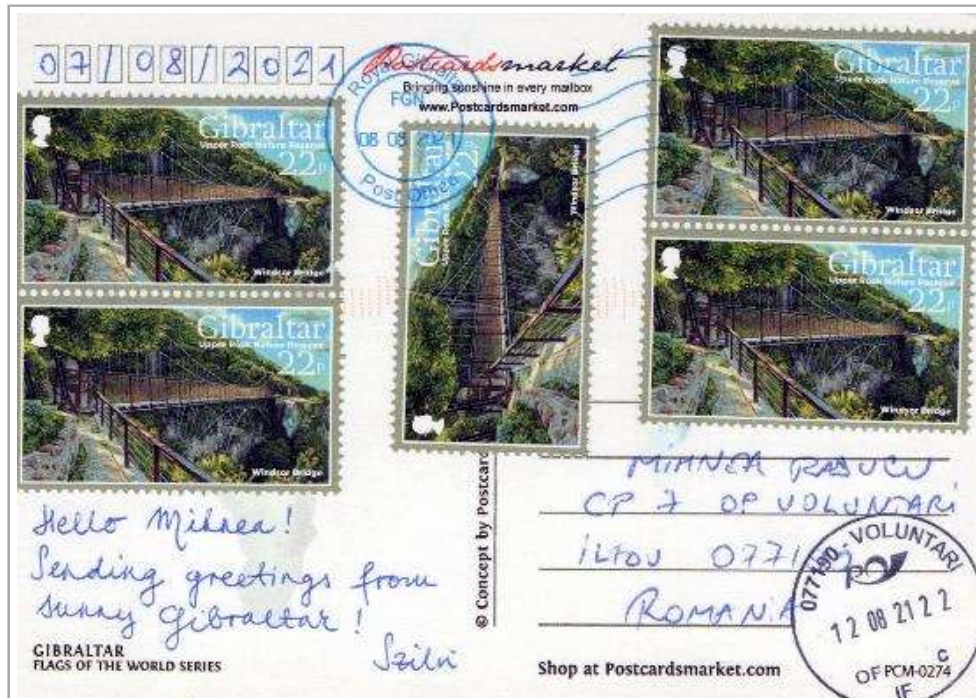 07/08/2021
Postcardsmarket
Bringing sunshine in every mailbox
www.Postcardsmarket.com
Royal Gibraltar
FGN
08 08 2021
Post Office
Gibraltar
Upper Rock Nature Reserve
22p
Windsor Bridge
Gibraltar
Upper Rock Nature Reserve
22p
Windsor Bridge
Gibraltar
Upper Rock Nature Reserve
22p
Windsor Bridge
Gibraltar
Upper Rock Nature Reserve
22p
Windsor Bridge
Gibraltar
Upper Rock Nature Reserve
22p
Windsor Bridge
Hello Mihnea!
Sending greetings from
sunny Gibraltar!
Szilvi
GIBRALTAR
FLAGS OF THE WORLD SERIES
© Concept by Postcard
MIHNEA RADUCU
CP 7 OP VOLUNTARI
ILFOV 077190
ROMANIA
077190-VOLUNTARI
12 08 21 22
C
OF
IF
Shop at Postcardsmarket.com
PCM-0274